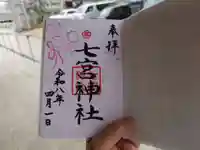 奉拝
七宮神社
令和八年
四月一日